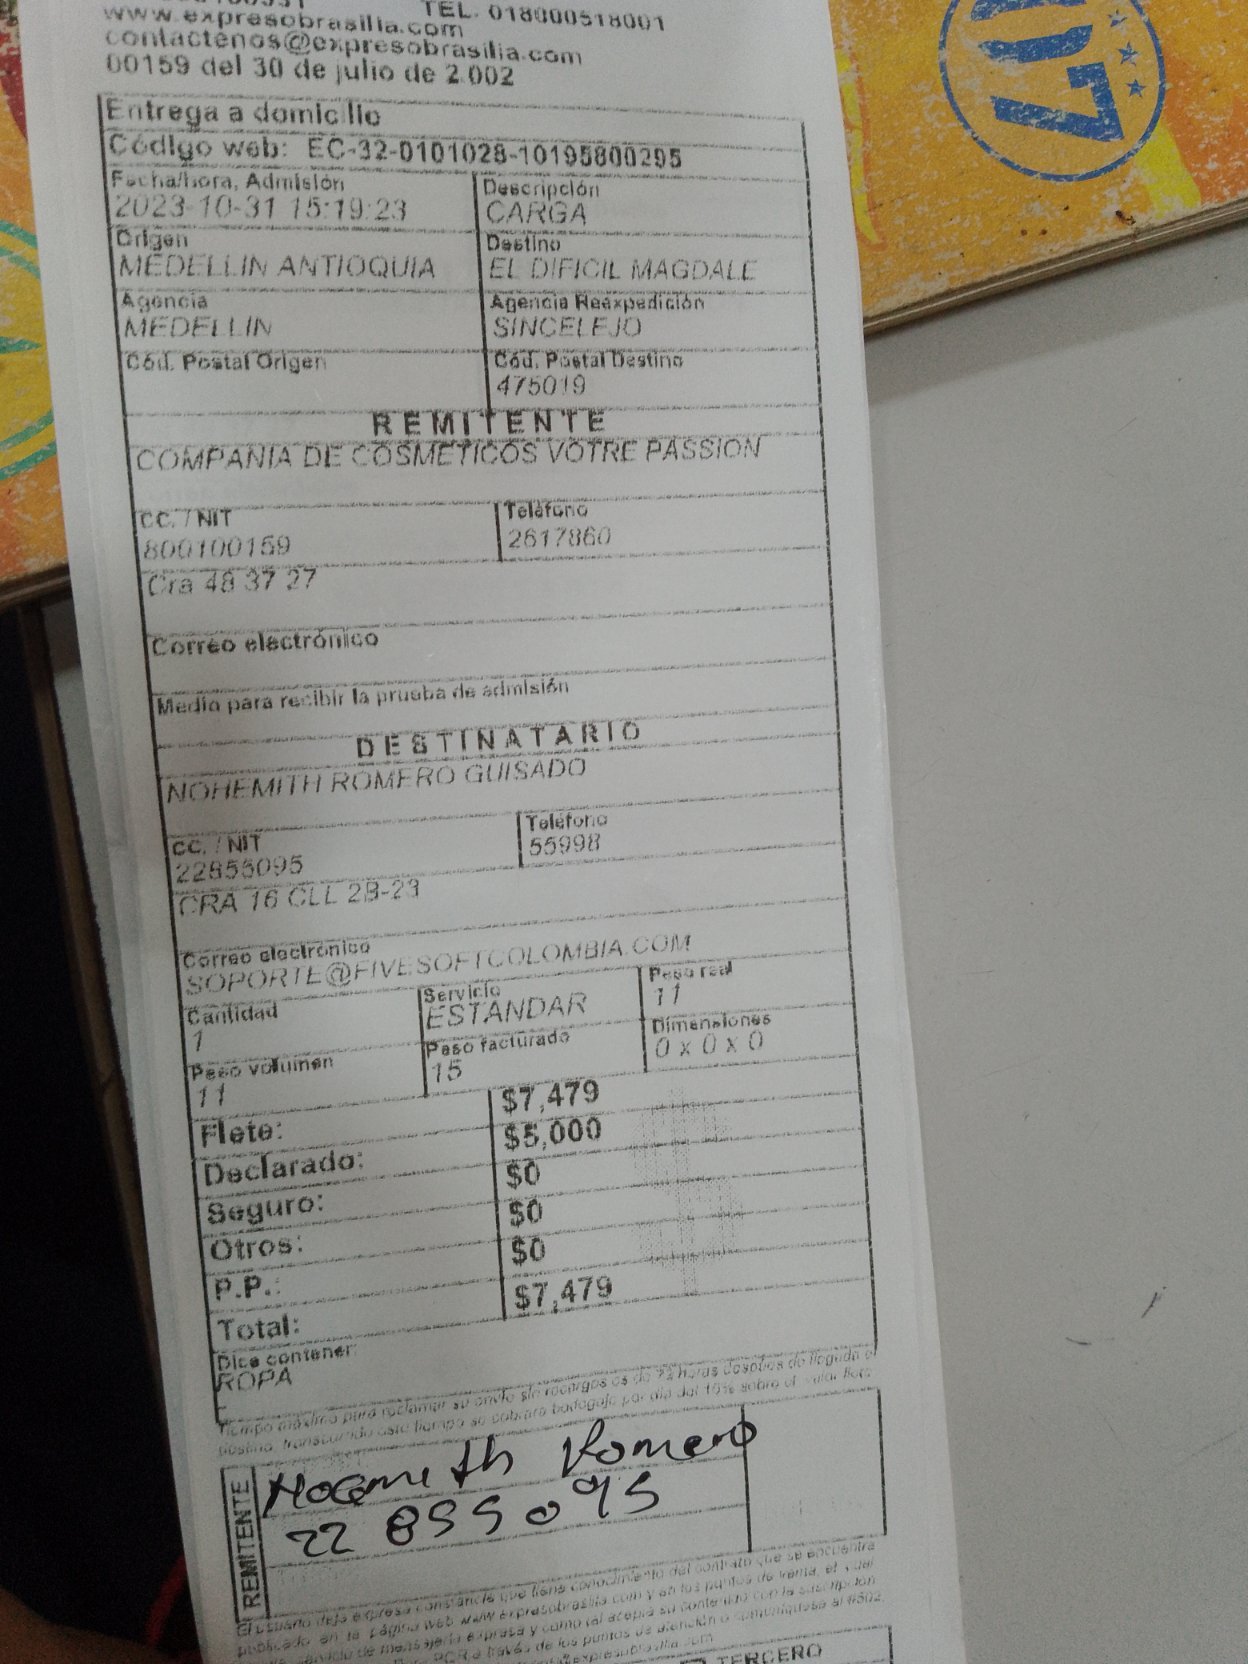 TEL. 018000518001
www.expresobrasilia.com
contactenos@expresobrasilia.com
00159 del 30 de julio de 2.002
Entrega a domicilio
Código web: EC-32-0101028-10195800295
Fecha/hora, Admisión Descripción
2023-10-31 15:19:23 CARGA
Origen Destino
MEDELLIN ANTIOQUIA EL DIFICIL MAGDALE
Agencia Agencia Reexpedición
MEDELLIN SINCELEJO
Cód. Postal Origen Cód. Postal Destino
475019
REMITENTE
COMPANIA DE COSMETICOS VOTRE PASSION
CC. / NIT Teléfono
800100159 2617860
Cra 48 37 27
Correo electrónico
Medio para recibir la prueba de admisión
DESTINATARIO
NOHEMITH ROMERO GUISADO
CC. / NIT Teléfono
22855095 55998
CRA 16 CLL 2B-23
Correo electrónico
SOPORTE@FIVESOFTCOLOMBIA.COM
Cantidad Servicio Peso real
1 ESTANDAR 11
Peso volumen Peso facturado Dimensiones
11 15 0 x 0 x 0
Flete: $7,479
Declarado: $5,000
Seguro: $0
Otros: $0
P.P.: $0
Total: $7,479
Dice contener:
ROPA
Tiempo máximo para reclamar su envío sin recargos es de 72 horas después de llegada a
destino, transcurrido este tiempo se cobrará bodegaje por día del 10% sobre el valor flete
REMITENTE
Noemith Romero
22 855095
El usuario deja expresa constancia que tiene conocimiento del contrato que se encuentra
publicado en la página web www.expresobrasilia.com y en los puntos de venta, el cual
servicio de mensajería expresa y como tal acepta su contenido con la suscripción
PQR a través de los puntos de atención o comuníquese al #502
TERCERO